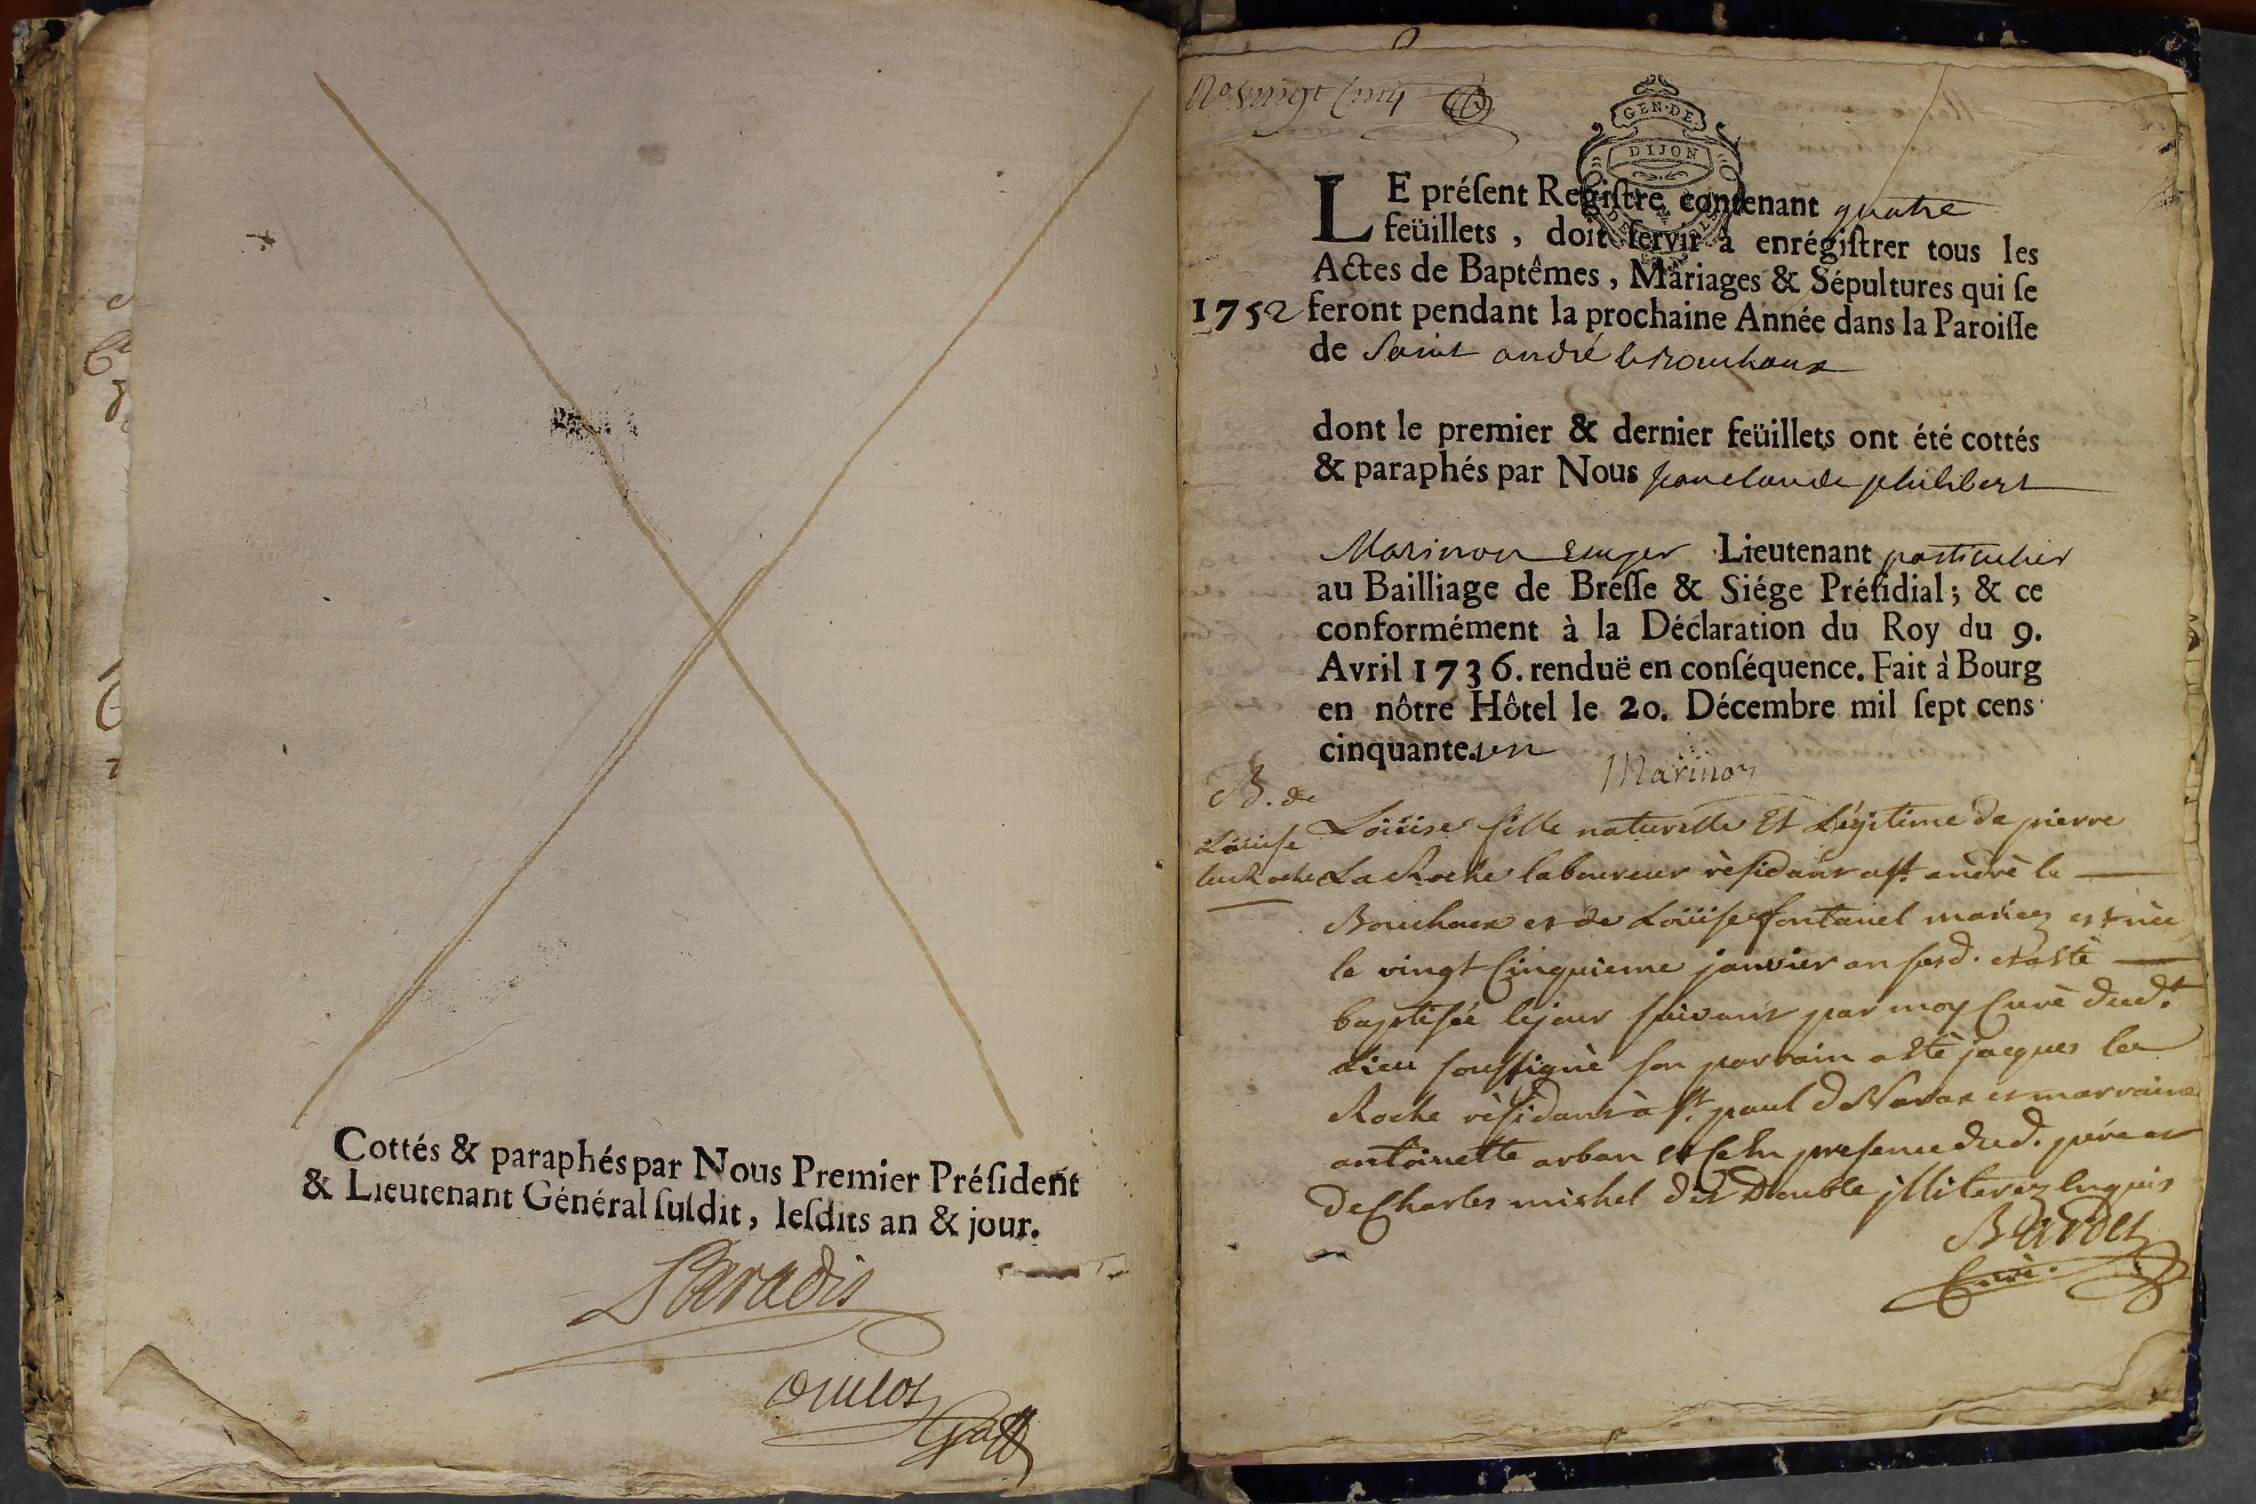 Cottés & paraphés par Nous Premier Préſident
& Lieutenant Général ſuſdit, leſdits an & jour.
Paradis
No. vingt Cinq
GEN. DE
DIJON
LE préſent Regiſtre, contenant quatre
feüillets, doit ſervir à enrégiſtrer tous les
Actes de Baptêmes, Mariages & Sépultures qui ſe
1752 feront pendant la prochaine Année dans la Paroiſſe
de Saint andré le Bouchoux
dont le premier & dernier feüillets ont été cottés
& paraphés par Nous jean claude philibert
Marinon Lieutenant particulier
au Bailliage de Breſſe & Siége Préſidial; & ce
conformément à la Déclaration du Roy du 9.
Avril 1736. renduë en conſéquence. Fait à Bourg
en nôtre Hôtel le 20. Décembre mil ſept cens
cinquante. un
Marinon
B. de
Loüiſe
la Roche
Loüise fille naturelle Et Légitime de pierre
La Roche laboureur rèſidant a ſt. andrè le
Bouchoux et de Loüiſe fontanel mariez est nèe
le vingt Cinquieme janvier an ſusd. et a estè
baptiſée le jour ſuivant par moy Curè dud.t
Lieu ſouſſignè ſon parrain a Estè jacques la
Roche rèſidant à ſt. paul de Varax et marraine
antoinette arban et Ce En preſence dud. pére et
de Charles michel dit Double illiterez Enquis
Bardet
Curè.